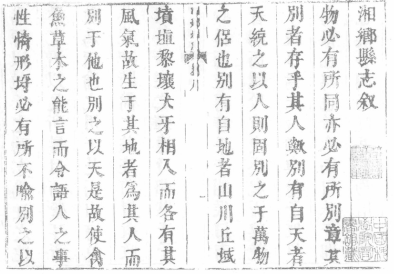 湘鄉縣志敘
物必有所同亦必有所別章其
別者存乎其人歟別有自天者
天統之以人則固別之于萬物
之侶也別有自地者山川丘域
墳壚黎壤犬牙相入而各有其
風氣故生于其地者為其人而
別于他也別之以天是故使禽
魚草木之能言而令語人之事
性情形埒必有所不喻別之以